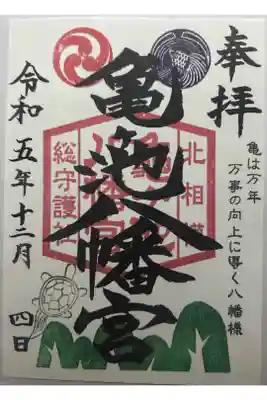 奉拝
亀は万年
万事の向上に導く八幡様
北相模
亀池八幡宮
総守護社
令和五年十二月
四日